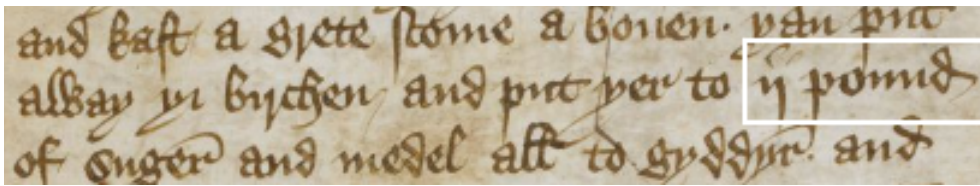 and kast a grete scome a bouen. yan put
alway yi byrchen and put yer to ii pound
of suger and medel all to gyddyr. and